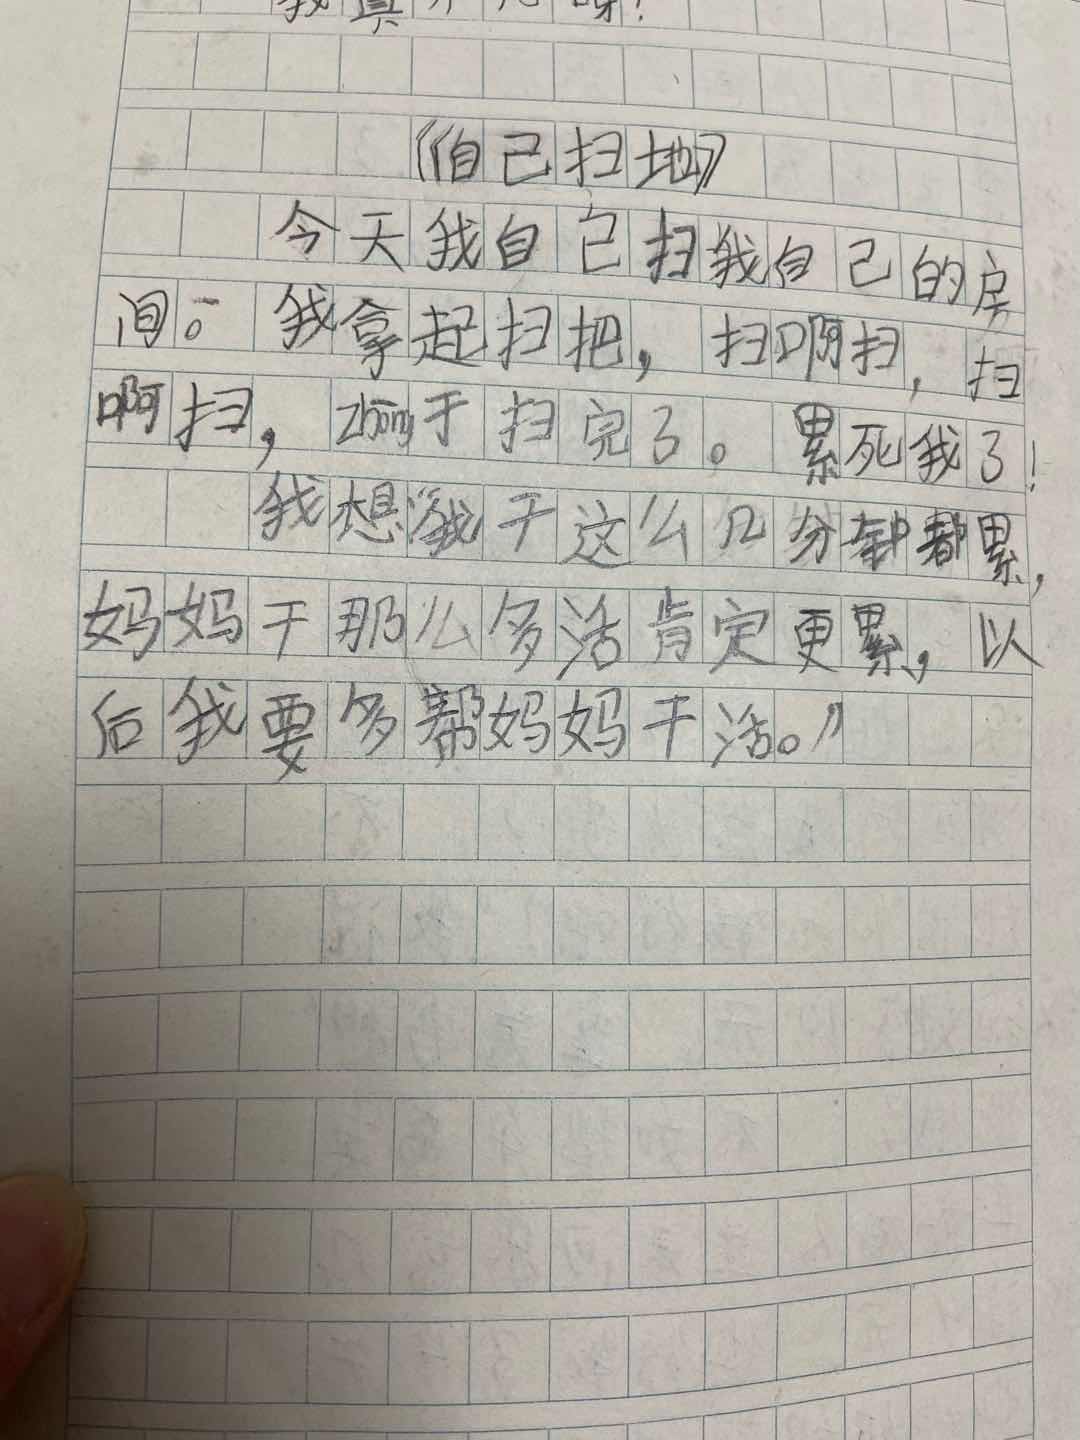 我真
《自己扫地》
今天我自己扫我自己的房
间。我拿起扫把，扫啊扫，扫
啊扫，zhōng于扫完了。累死我了！
我想“我干这么几分钟都累，
妈妈干那么多活肯定更累，以
后我要多帮妈妈干活。”